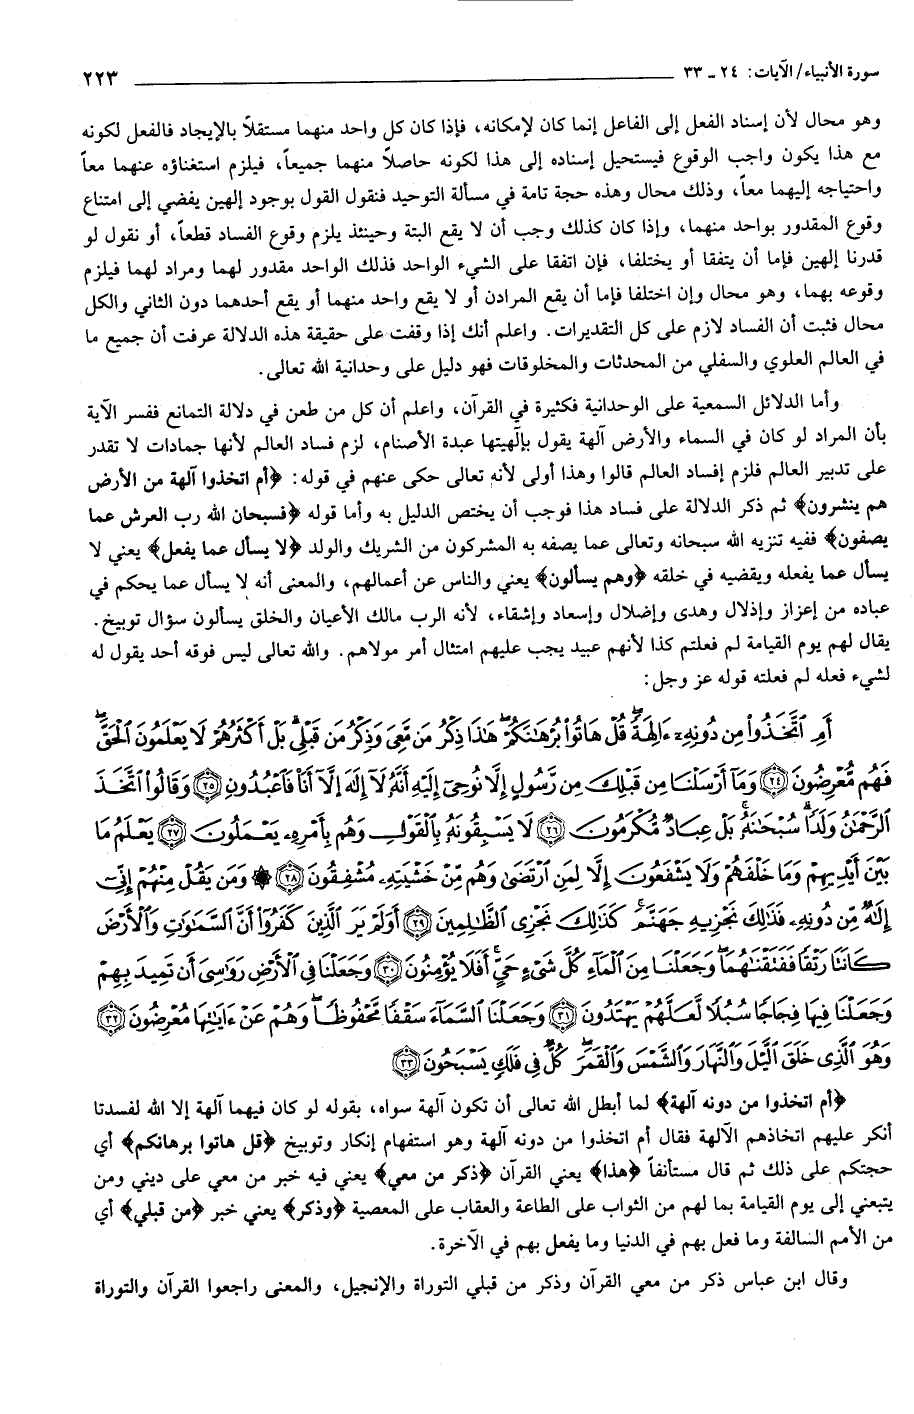 سورة الأنبياء/ الآيات: ٢٤ - ٣٣ ٢٢٣
وهو محال لأن إسناد الفعل إلى الفاعل إنما كان لإمكانه، فإذا كان كل واحد منهما مستقلاً بالإيجاد فالفعل لكونه
مع هذا يكون واجب الوقوع فيستحيل إسناده إلى هذا لكونه حاصلاً منهما جميعاً، فيلزم استغناؤه عنهما معاً
واحتياجه إليهما معاً، وذلك محال وهذه حجة تامة في مسألة التوحيد فنقول القول بوجود إلهين يفضي إلى امتناع
وقوع المقدور بواحد منهما، وإذا كان كذلك وجب أن لا يقع البتة وحينئذ يلزم وقوع الفساد قطعاً، أو نقول لو
قدرنا إلهين فإما أن يتفقا أو يختلفا، فإن اتفقا على الشيء الواحد فذلك الواحد مقدور لهما ومراد لهما فيلزم
وقوعه بهما، وهو محال وإن اختلفا فإما أن يقع المرادن أو لا يقع واحد منهما أو يقع أحدهما دون الثاني والكل
محال فثبت أن الفساد لازم على كل التقديرات. واعلم أنك إذا وقفت على حقيقة هذه الدلالة عرفت أن جميع ما
في العالم العلوي والسفلي من المحدثات والمخلوقات فهو دليل على وحدانية الله تعالى.
وأما الدلائل السمعية على الوحدانية فكثيرة في القرآن، واعلم أن كل من طعن في دلالة التمانع ففسر الآية
بأن المراد لو كان في السماء والأرض آلهة يقول بإلٓهيتها عبدة الأصنام، لزم فساد العالم لأنها جمادات لا تقدر
على تدبير العالم فلزم إفساد العالم قالوا وهذا أولى لأنه تعالى حكى عنهم في قوله: ﴿أم اتخذوا آلهة من الأرض
هم ينشرون﴾ ثم ذكر الدلالة على فساد هذا فوجب أن يختص الدليل به وأما قوله ﴿فسبحان الله رب العرش عما
يصفون﴾ ففيه تنزيه الله سبحانه وتعالى عما يصفه به المشركون من الشريك والولد ﴿لا يسأل عما يفعل﴾ يعني لا
يسأل عما يفعله ويقضيه في خلقه ﴿وهم يسألون﴾ يعني والناس عن أعمالهم، والمعنى أنه لا يسأل عما يحكم في
عباده من إعزاز وإذلال وهدى وإضلال وإسعاد وإشقاء، لأنه الرب مالك الأعيان والخلق يسألون سؤال توبيخ.
يقال لهم يوم القيامة لم فعلتم كذا لأنهم عبيد يجب عليهم امتثال أمر مولاهم. والله تعالى ليس فوقه أحد يقول له
لشيء فعله لم فعلته قوله عز وجل:
أَمِ ٱتَّخَذُواْ مِن دُونِهِۦٓ ءَالِهَةًۖ قُلۡ هَاتُواْ بُرۡهَٰنَكُمۡۖ هَٰذَا ذِكۡرُ مَن مَّعِيَ وَذِكۡرُ مَن قَبۡلِيۚ بَلۡ أَكۡثَرُهُمۡ لَا يَعۡلَمُونَ ٱلۡحَقَّۖ
فَهُم مُّعۡرِضُونَ ﴿٢٤﴾ وَمَآ أَرۡسَلۡنَا مِن قَبۡلِكَ مِن رَّسُولٍ إِلَّا نُوحِيٓ إِلَيۡهِ أَنَّهُۥ لَآ إِلَٰهَ إِلَّآ أَنَا۠ فَٱعۡبُدُونِ ﴿٢٥﴾ وَقَالُواْ ٱتَّخَذَ
ٱلرَّحۡمَٰنُ وَلَدٗاۗ سُبۡحَٰنَهُۥۚ بَلۡ عِبَادٞ مُّكۡرَمُونَ ﴿٢٦﴾ لَا يَسۡبِقُونَهُۥ بِٱلۡقَوۡلِ وَهُم بِأَمۡرِهِۦ يَعۡمَلُونَ ﴿٢٧﴾ يَعۡلَمُ مَا
بَيۡنَ أَيۡدِيهِمۡ وَمَا خَلۡفَهُمۡ وَلَا يَشۡفَعُونَ إِلَّا لِمَنِ ٱرۡتَضَىٰ وَهُم مِّنۡ خَشۡيَتِهِۦ مُشۡفِقُونَ ﴿٢٨﴾ ۞ وَمَن يَقُلۡ مِنۡهُمۡ إِنِّيٓ
إِلَٰهٞ مِّن دُونِهِۦ فَذَٰلِكَ نَجۡزِيهِ جَهَنَّمَۚ كَذَٰلِكَ نَجۡزِي ٱلظَّٰلِمِينَ ﴿٢٩﴾ أَوَلَمۡ يَرَ ٱلَّذِينَ كَفَرُوٓاْ أَنَّ ٱلسَّمَٰوَٰتِ وَٱلۡأَرۡضَ
كَانَتَا رَتۡقٗا فَفَتَقۡنَٰهُمَاۖ وَجَعَلۡنَا مِنَ ٱلۡمَآءِ كُلَّ شَيۡءٍ حَيٍّۚ أَفَلَا يُؤۡمِنُونَ ﴿٣٠﴾ وَجَعَلۡنَا فِي ٱلۡأَرۡضِ رَوَٰسِيَ أَن تَمِيدَ بِهِمۡ
وَجَعَلۡنَا فِيهَا فِجَاجٗا سُبُلٗا لَّعَلَّهُمۡ يَهۡتَدُونَ ﴿٣١﴾ وَجَعَلۡنَا ٱلسَّمَآءَ سَقۡفٗا مَّحۡفُوظٗاۖ وَهُمۡ عَنۡ ءَايَٰتِهَا مُعۡرِضُونَ ﴿٣٢﴾
وَهُوَ ٱلَّذِي خَلَقَ ٱلَّيۡلَ وَٱلنَّهَارَ وَٱلشَّمۡسَ وَٱلۡقَمَرَۖ كُلّٞ فِي فَلَكٖ يَسۡبَحُونَ ﴿٣٣﴾
﴿أم اتخذوا من دونه آلهة﴾ لما أبطل الله تعالى أن تكون آلهة سواه، بقوله لو كان فيهما آلهة إلا الله لفسدتا
أنكر عليهم اتخاذهم الآلهة فقال أم اتخذوا من دونه آلهة وهو استفهام إنكار وتوبيخ ﴿قل هاتوا برهانكم﴾ أي
حجتكم على ذلك ثم قال مستأنفاً ﴿هذا﴾ يعني القرآن ﴿ذكر من معي﴾ يعني فيه خبر من معي على ديني ومن
يتبعني إلى يوم القيامة بما لهم من الثواب على الطاعة والعقاب على المعصية ﴿وذكر﴾ يعني خبر ﴿من قبلي﴾ أي
من الأمم السالفة وما فعل بهم في الدنيا وما يفعل بهم في الآخرة.
وقال ابن عباس ذكر من معي القرآن وذكر من قبلي التوراة والإنجيل، والمعنى راجعوا القرآن والتوراة